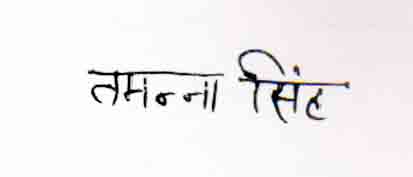 तमन्ना सिंह